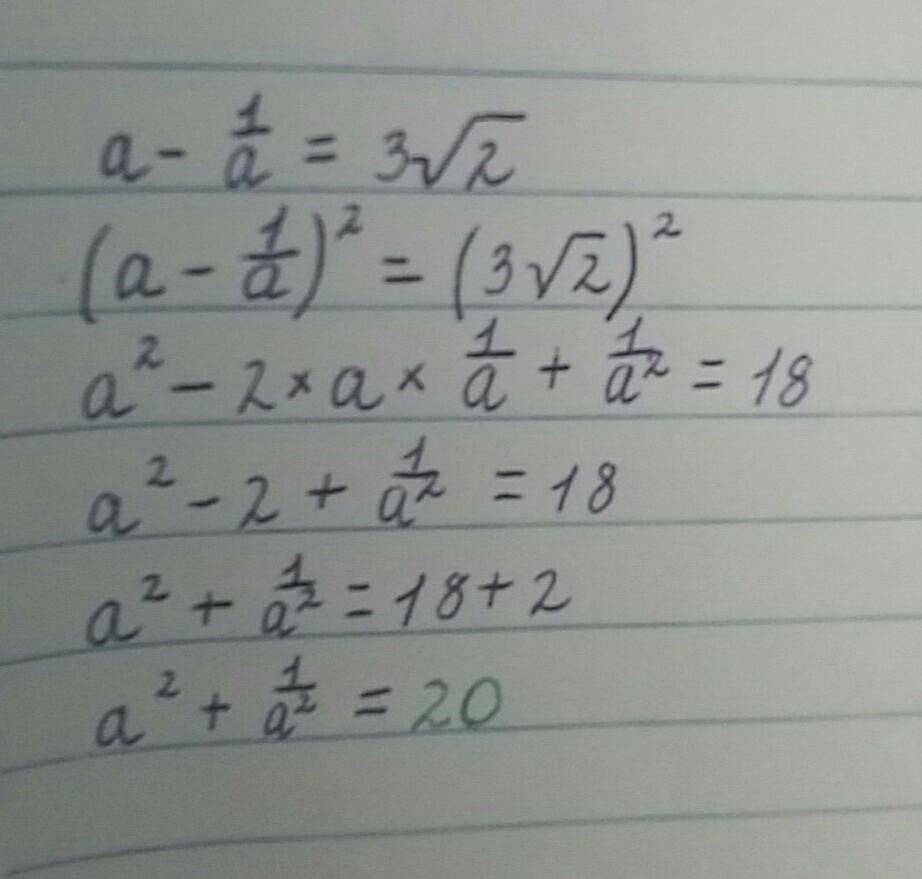 a - 1/a = 3√2
(a - 1/a)² = (3√2)²
a² - 2 × a × 1/a + 1/a² = 18
a² - 2 + 1/a² = 18
a² + 1/a² = 18 + 2
a² + 1/a² = 20